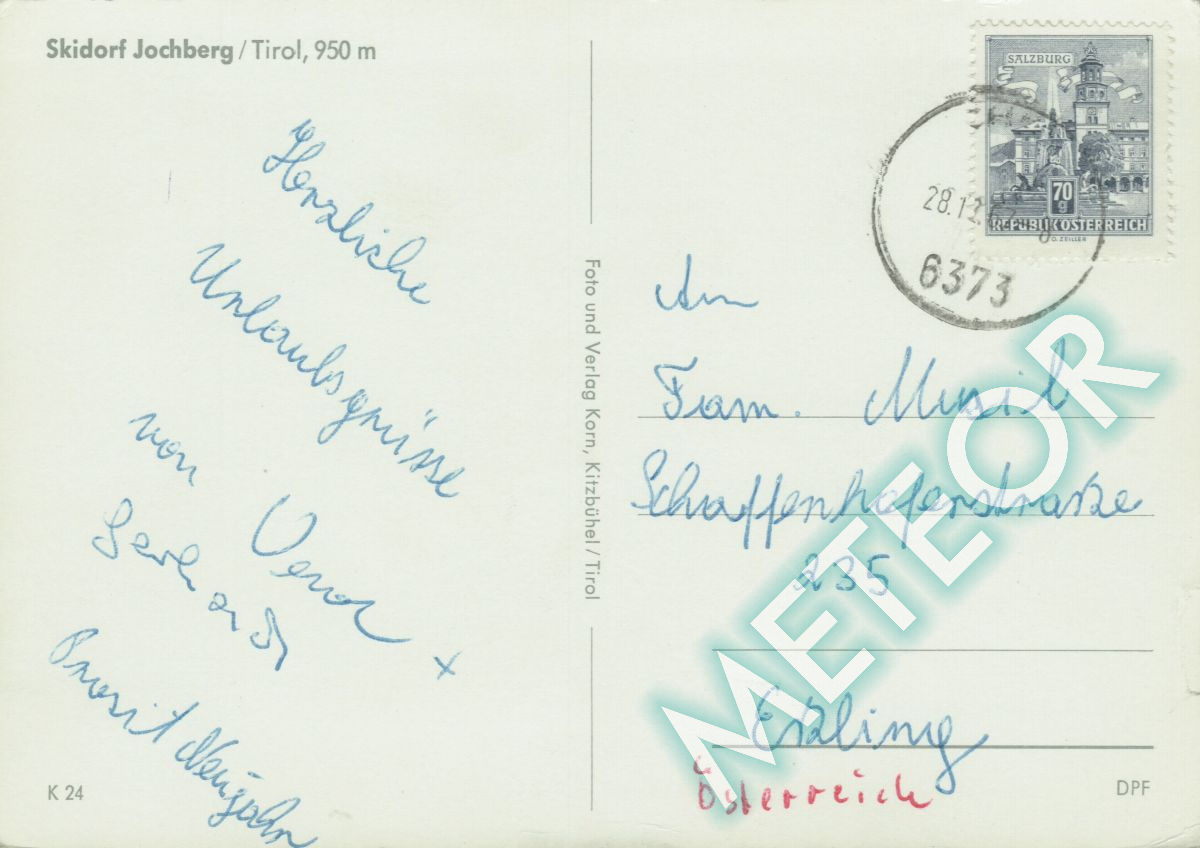 Skidorf Jochberg / Tirol, 950 m
Herzliche
Urlaubsgrüsse
von Vera +
Gerhard
Prosit Neujahr
K 24
Foto und Verlag Korn, Kitzbühel / Tirol
SALZBURG
70
g
REPUBLIK ÖSTERREICH
O. ZEILLER
28.12.
6373
An
Fam. Musil
Schaffenhoferstraße
235
Eßling
Österreich
DPF
METEOR